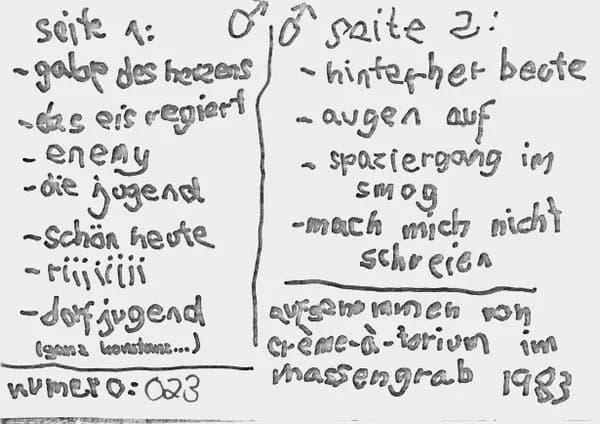 seite 1:
- gabe des herzens
- das eis regiert
- enemy
- die jugend
- schön heute
- riijiiiji
- dorfjugend
(ganz konstanz...)
numero: 023
seite 2:
- hinterher beate
- augen auf
- spaziergang im
smog
- mach mich nicht
schreien
aufgenommen von
crème-à-torium im
massengrab 1983